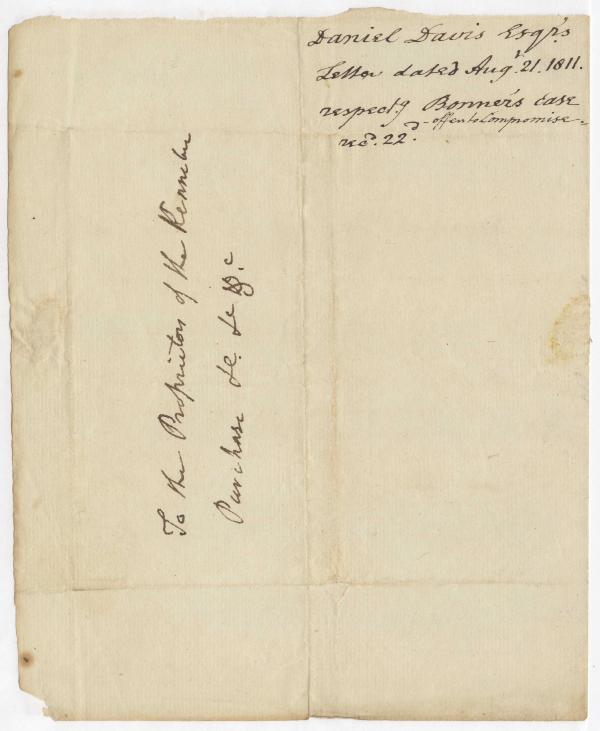 Daniel Davis Esqr's
Letter dated Augt. 21. 1811.
respectg Bonner's case
- offer to Compromise -
recd. 22d.
To the Proprietors of the Kennebec
Purchase &c. &c &c